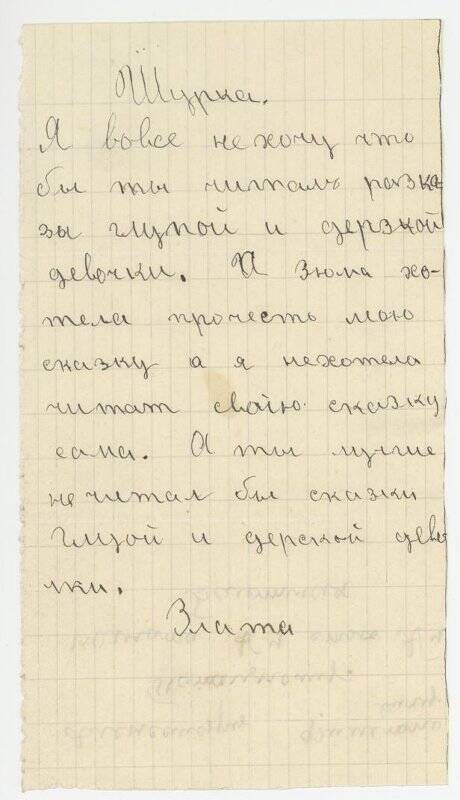 Шурка.
Я вовсе нехочу что
бы ты читалъ разка
зы глупой и дерзкой
девочки. А Зюма хо-
тела прочесть мою
сказку а я нехотела
читат свойю сказку
сама. А ты лучше
нечитал бы сказки
глупой и дерской дево
чки.
Злата